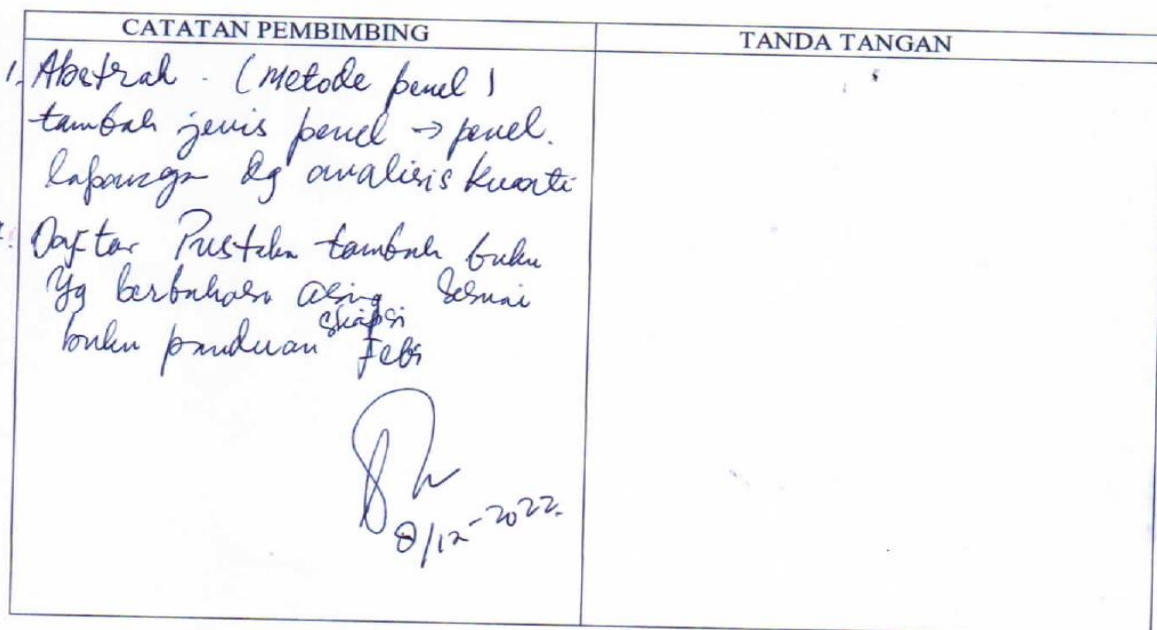 CATATAN PEMBIMBING
TANDA TANGAN
1. Abstrak. (Metode penel)
tambah jenis penel → penel.
lapangan dg analisis Kuanti
2. Daftar Pustaka tambah buku
Yg berbahasa asing sesuai
buku panduan skripsi Febi
8/12-2022.